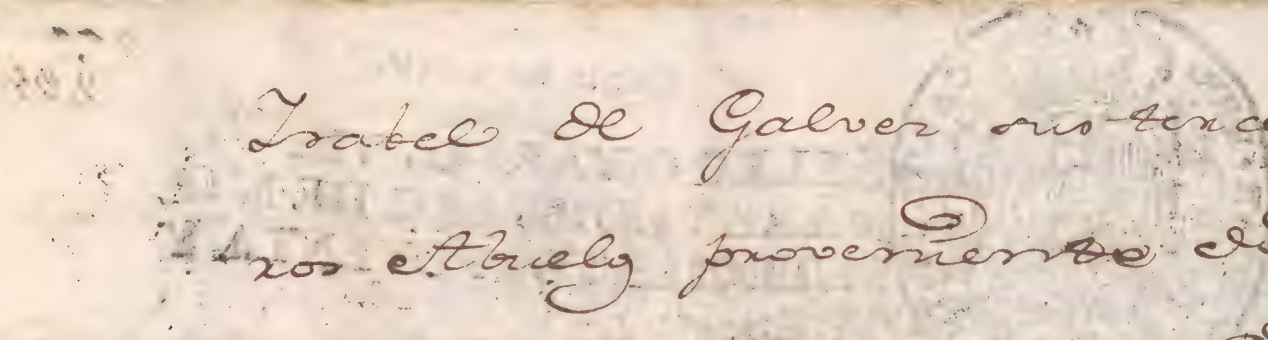 Isabel de Galvez sus terce
ros Abuelos proveniente de